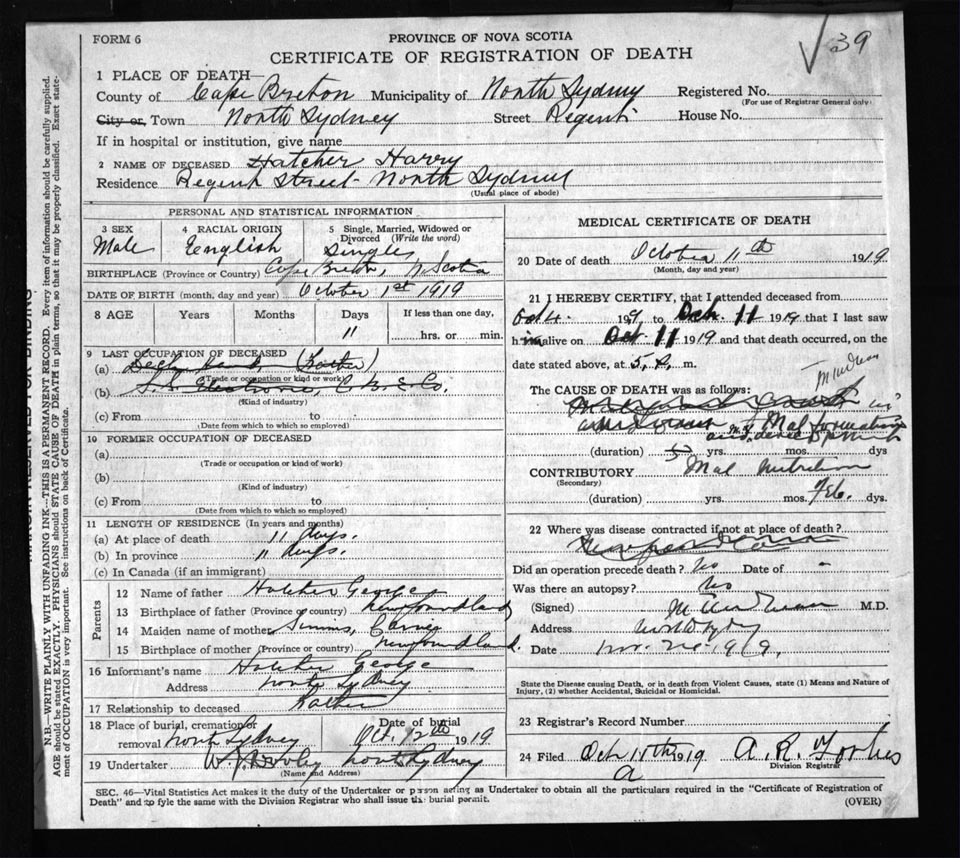 FORM 6
PROVINCE OF NOVA SCOTIA
39
CERTIFICATE OF REGISTRATION OF DEATH
1 PLACE OF DEATH—
County of Cape Breton Municipality of North Sydney Registered No.
(For use of Registrar General only)
City or Town North Sydney Street Regent House No.
If in hospital or institution, give name
2 NAME OF DECEASED Hatcher Harry
Residence Regent Street North Sydney
(Usual place of abode)
PERSONAL AND STATISTICAL INFORMATION
3 SEX 4 RACIAL ORIGIN 5 Single, Married, Widowed or Divorced (Write the word)
Male English Single
BIRTHPLACE (Province or Country) Cape Breton, N Scotia
DATE OF BIRTH (month, day and year) October 1st 1919
8 AGE Years Months Days If less than one day,
11 hrs. or min.
9 LAST OCCUPATION OF DECEASED
(a)
(Trade or occupation or kind of work)
(b)
(Kind of industry)
(c) From to
(Date from which to which so employed)
10 FORMER OCCUPATION OF DECEASED
(a)
(Trade or occupation or kind of work)
(b)
(Kind of industry)
(c) From to
(Date from which to which so employed)
11 LENGTH OF RESIDENCE (In years and months)
(a) At place of death 11 days.
(b) In province 11 days.
(c) In Canada (if an immigrant)
Parents
12 Name of father Hatcher George
13 Birthplace of father (Province or country) Newfoundland
14 Maiden name of mother Simms,
15 Birthplace of mother (Province or country) Newfoundland.
16 Informant's name Hatcher George
Address North Sydney
17 Relationship to deceased Father
18 Place of burial, cremation or removal North Sydney Date of burial Oct. 12th 1919
19 Undertaker North Sydney
(Name and Address)
MEDICAL CERTIFICATE OF DEATH
20 Date of death October 11th 1919
(Month, day and year)
21 I HEREBY CERTIFY, that I attended deceased from
Oct 4. 191 9 to Oct. 11 1919 that I last saw
him alive on Oct 11 1919 and that death occurred, on
date stated above, at 5, P. m.
The CAUSE OF DEATH was as follows:
Mal formation
(duration) yrs. mos. dys
CONTRIBUTORY Mal Nutrition
(Secondary)
(duration) yrs. mos. dys.
22 Where was disease contracted if not at place of death?
Did an operation precede death? No Date of -
Was there an autopsy? No
(Signed) M.D.
Address
Date Nov. 1919.
State the Disease causing Death, or in death from Violent Causes, state (1) Means and Nature of
Injury, (2) whether Accidental, Suicidal or Homicidal.
23 Registrar's Record Number
24 Filed Oct 1919 A. R. Forbes
Division Registrar
SEC. 46—Vital Statistics Act makes it the duty of the Undertaker or person acting as Undertaker to obtain all the particulars required in the "Certificate of Registration of
Death" and to fyle the same with the Division Registrar who shall issue the burial permit.
(OVER)
MARGIN RESERVED FOR BINDING
N.B.—WRITE PLAINLY WITH UNFADING INK—THIS IS A PERMANENT RECORD. Every item of information should be carefully supplied.
AGE should be stated EXACTLY. PHYSICIANS should STATE CAUSE OF DEATH in plain terms, so that it may be properly classified. Exact state-
ment of OCCUPATION is very important. See instructions on back of Certificate.